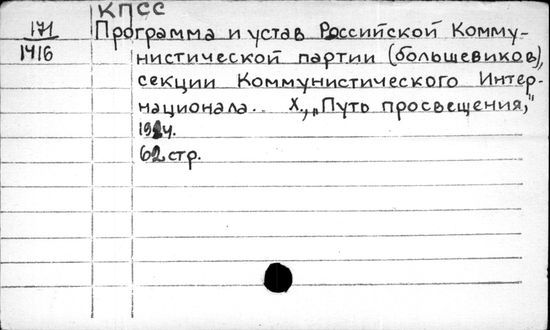 КПСС
171
1416
Программа и устав Российской Комму-
нистической партии (большевиков),
секции Коммунистического Интер-
национала.. Х., „Путь просвещения,"
1924.
62 стр.